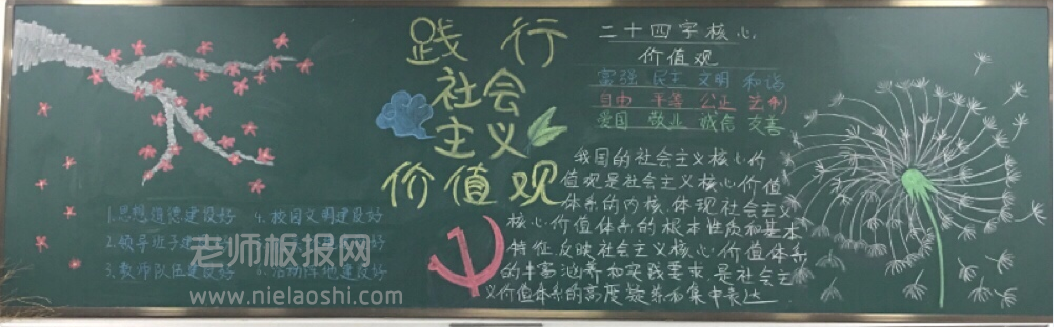 践行
社会
主义
价值观
二十四字核心
价值观
富强 民主 文明 和谐
自由 平等 公正 法制
爱国 敬业 诚信 友善
我国的社会主义核心价
值观是社会主义核心价值
体系的内核,体现社会主义
核心价值体系的根本性质和基本
特征反映社会主义核心价值体系
的丰富涵养和实践要求,是社会主
义价值体系的高度凝练和集中表达
1.思想道德建设好
2.领导班子建
3.教师队伍建设好
4.校园文明建设好
好
6.活动阵地建设好
老师板报网
www.nielaoshi.com